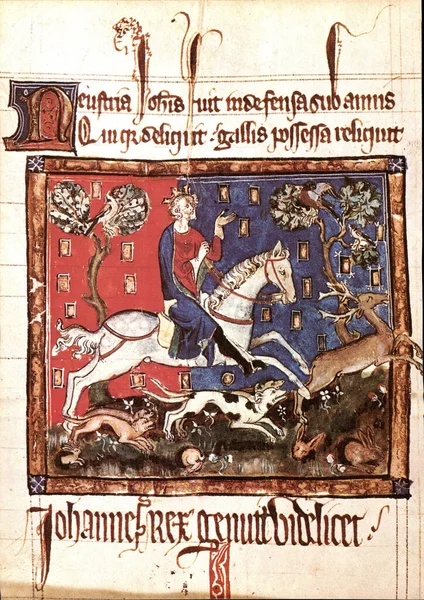 Neustria Joh'is fuit indefensa sub annis
Quinq; deliquit : gallis possessa reliquit
Johannes REX genuit videlicet :